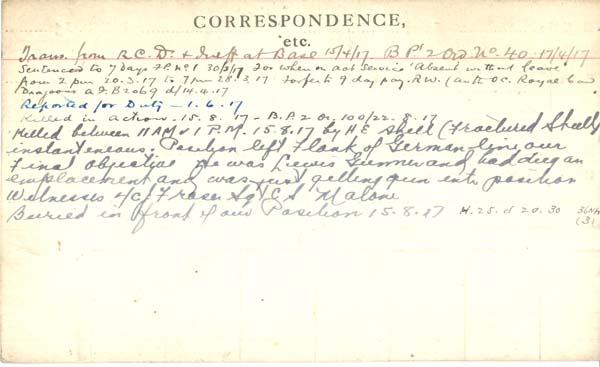 CORRESPONDENCE,
etc.
Trans. from R.C.D. & Ineff at Base 15/4/17 B P 2 Ord. No. 40 17/4/17
Sentenced to 7 days F.P. No 1 30/3/17 For when on act service "Absent without leave
from 2 pm 20.3.17 to 7 pm 28.3.17 Forfeits 9 day pay. R.W. (auth O.C. Royal Can
Dragoons A.F.B 2069 d/14.4.17
Reported for Duty - 1.6.17
Killed in action - 15.8.17 - B.P. 2 O. 100/22.8.17
Killed between 11 AM & 1 P.M. 15.8.17 by H E Shell (Fractured Skull)
instantaneous. Position left Flank of German line our
Final objective He was Lewis Gunner and had dug an
emplacement and was just getting gun into position
Witnesses Fraser Sgt C S Malone
Buried in front of our Position 15.8.17 H.25.d 20.30 36NH
(3)